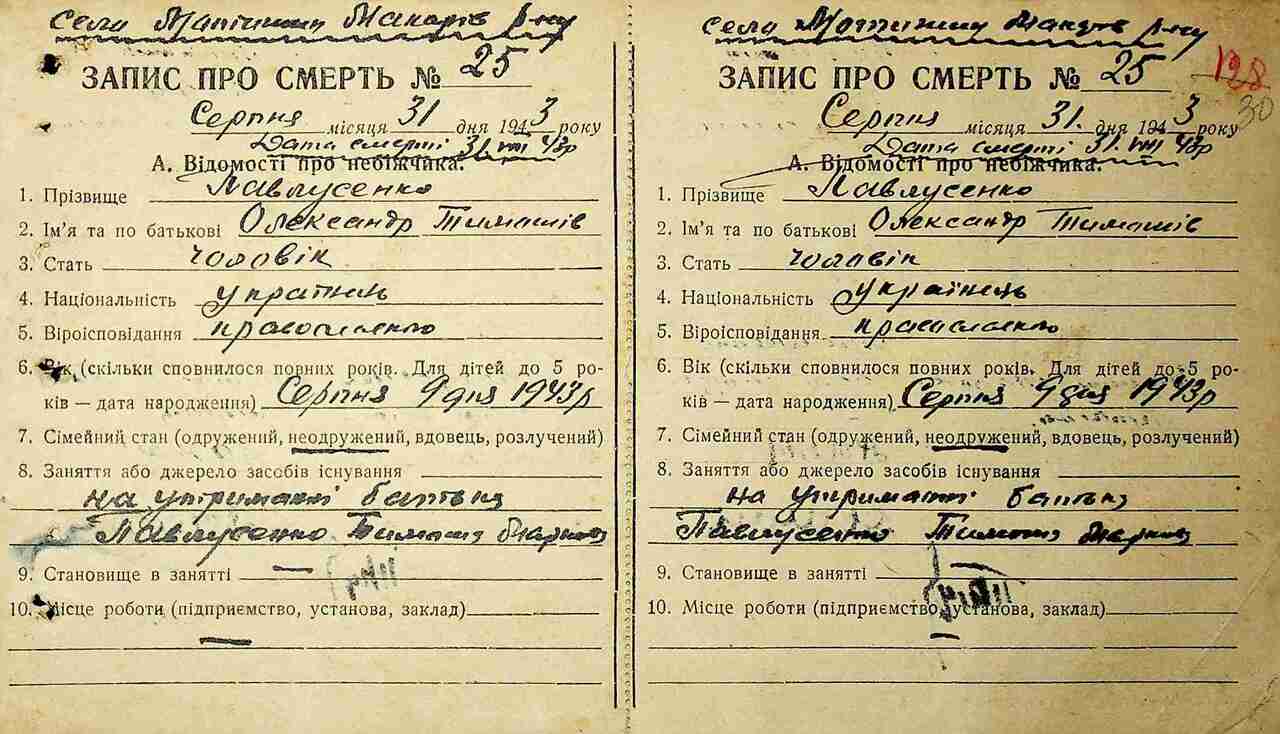 села Мотижин Макарів р-ну
ЗАПИС ПРО СМЕРТЬ № 25
Серпня місяця 31 дня 1943 року
Дата смерті 31.VIII 43р
А. Відомості про небіжчика.
1. Прізвище Павлусенко
2. Ім’я та по батькові Олександр Тимошів
3. Стать чоловік
4. Національність українець
5. Віроісповідання православного
6. Вік (скільки сповнилося повних років. Для дітей до 5 ро-
ків — дата народження) Серпня 9 дня 1943 р
7. Сімейний стан (одружений, неодружений, вдовець, розлучений)
8. Заняття або джерело засобів існування
на утриманні батька
Павлусенко Тимоша
9. Становище в занятті —
10. Місце роботи (підприємство, установа, заклад)
—
села Мотижин Макарів р-ну
ЗАПИС ПРО СМЕРТЬ № 25
128
30
Серпня місяця 31. дня 1943 року
Дата смерті 31.VIII 43р
А. Відомості про небіжчика.
1. Прізвище Павлусенко
2. Ім’я та по батькові Олександр Тимошів
3. Стать чоловік
4. Національність українець
5. Віроісповідання православного
6. Вік (скільки сповнилося повних років. Для дітей до 5 ро-
ків — дата народження) Серпня 9 дня 1943 р
7. Сімейний стан (одружений, неодружений, вдовець, розлучений)
8. Заняття або джерело засобів існування
на утриманні батька
Павлусенко Тимоша
9. Становище в занятті —
10. Місце роботи (підприємство, установа, заклад)
—